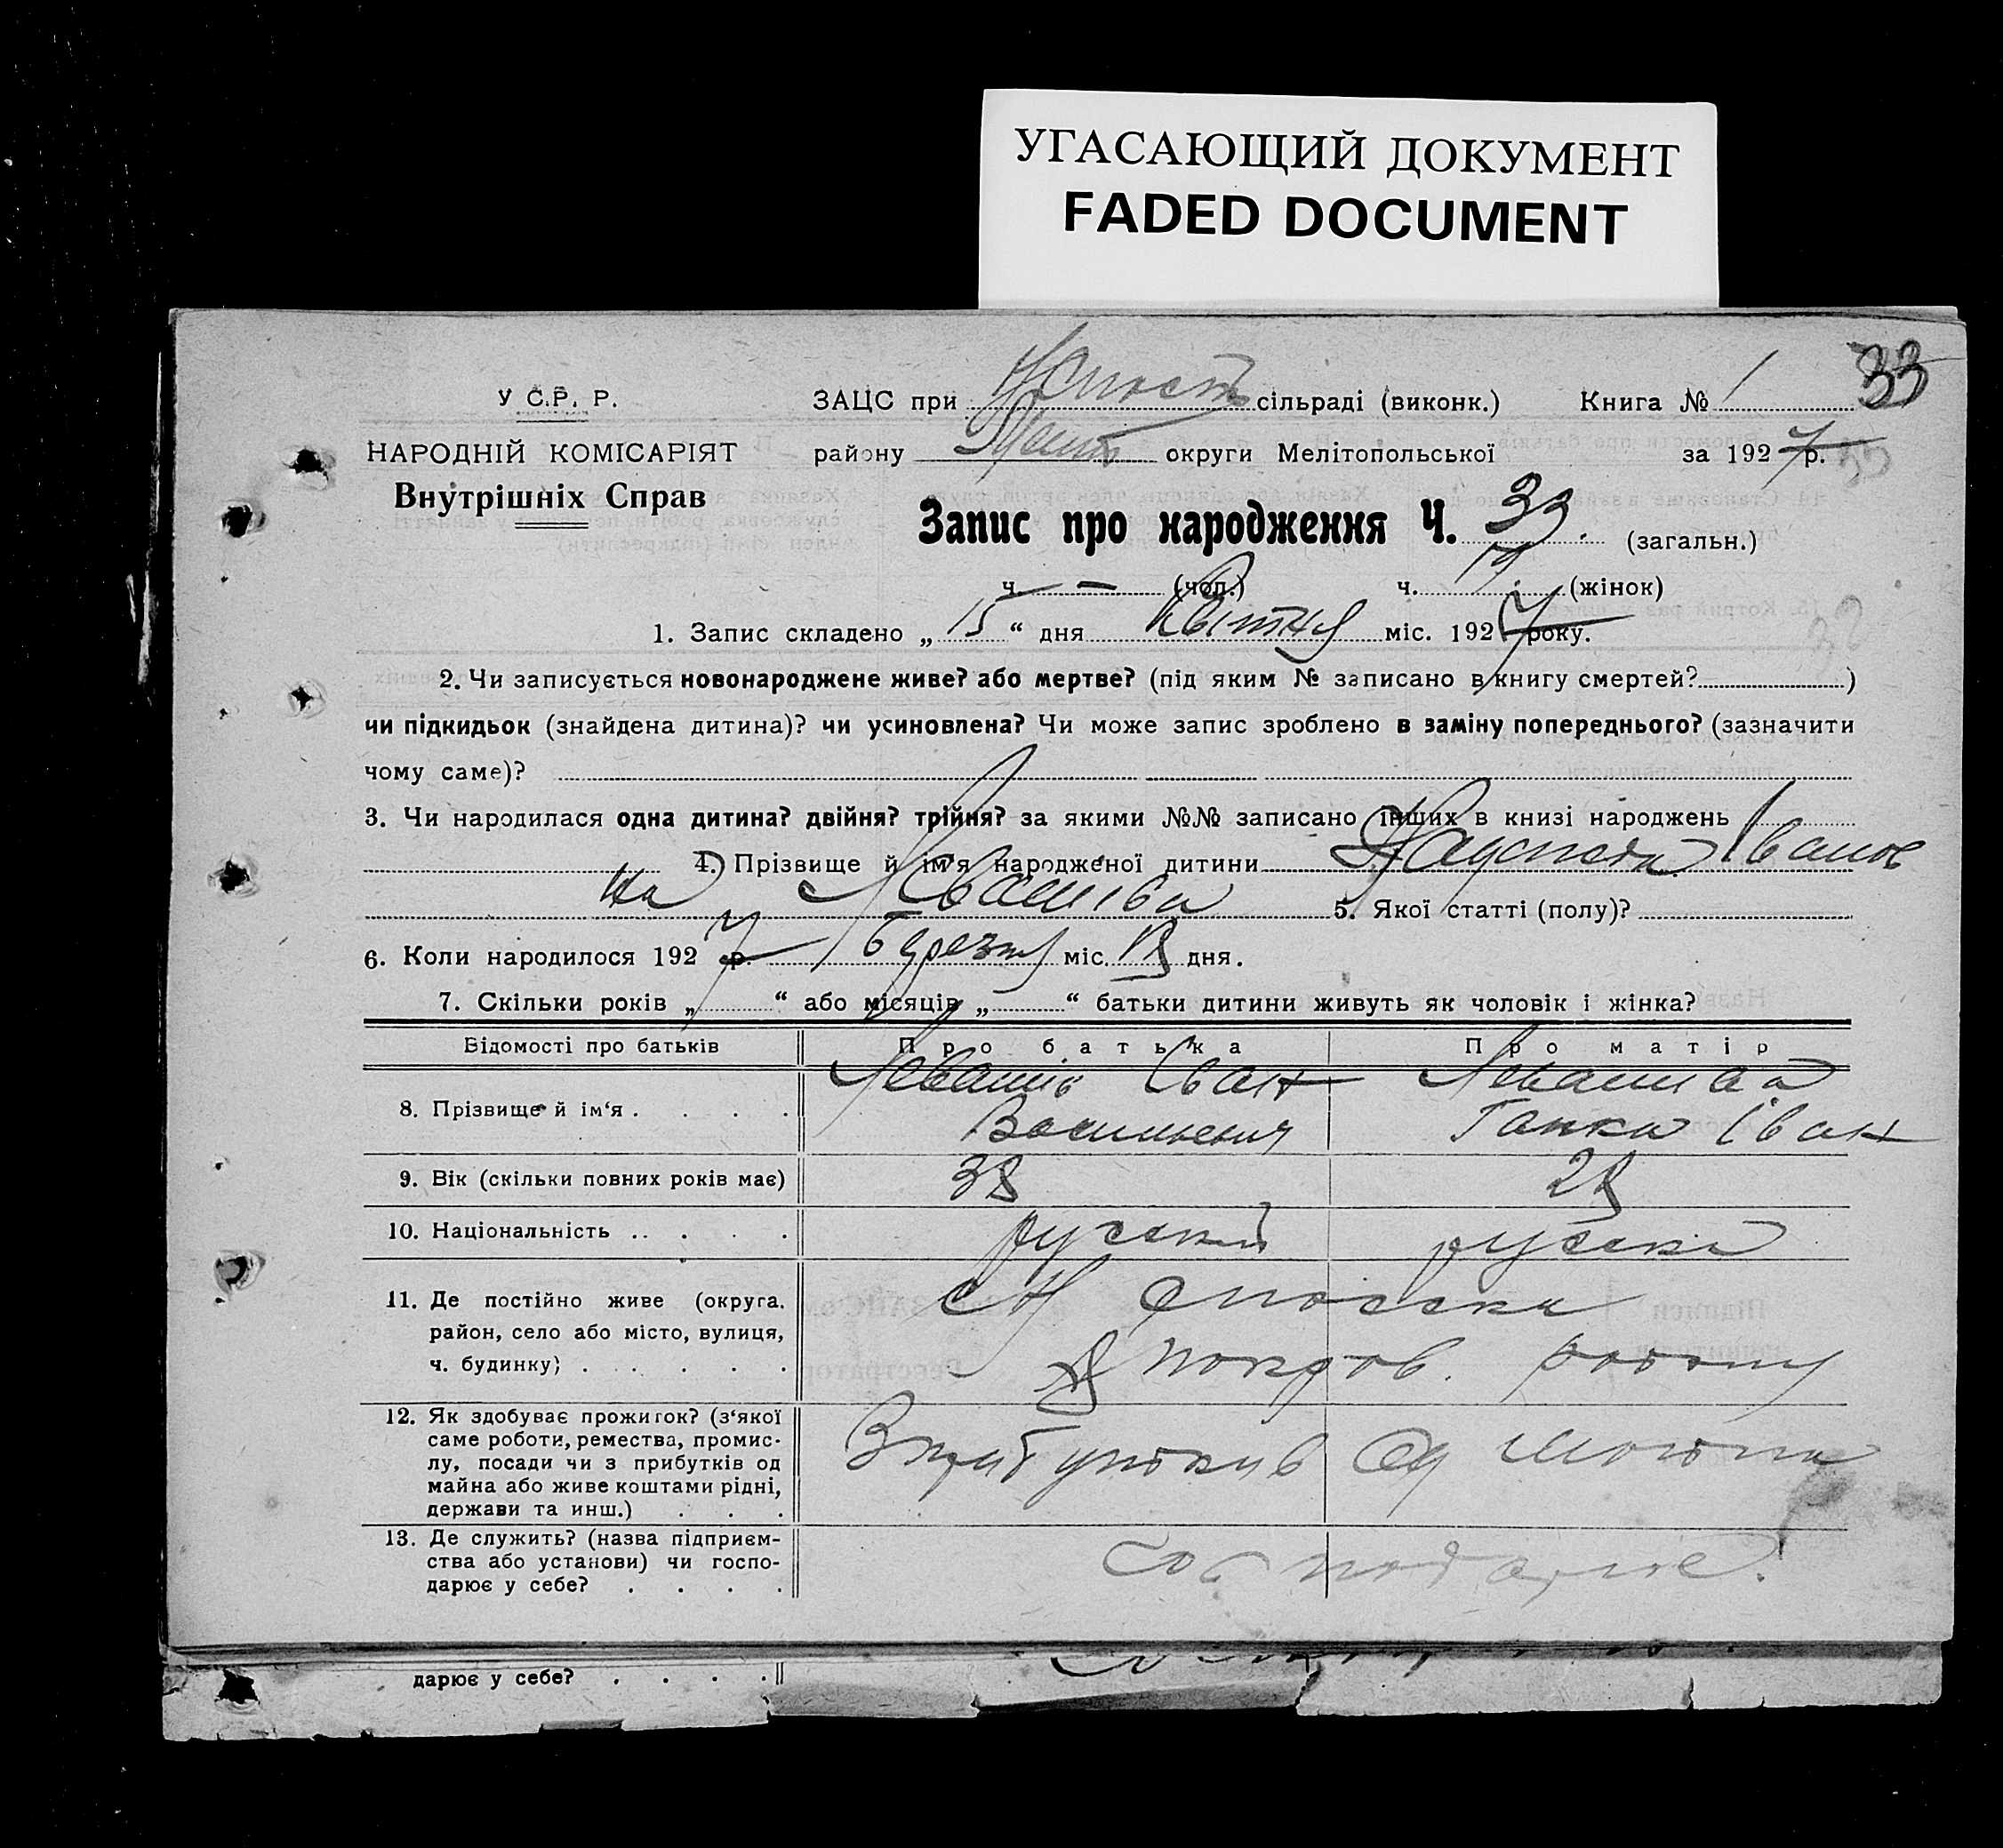 УГАСАЮЩИЙ ДОКУМЕНТ
FADED DOCUMENT
У С.Р. Р.
ЗАЦС при сільраді (виконк.) Книга № 1 33
НАРОДНІЙ КОМІСАРІЯТ
району округи Мелітопольської за 1927 р.
Внутрішніх Справ
Запис про народження Ч. 33. (загальн.)
ч. — (чол.) ч. 17 (жінок)
1. Запис складено „ 15 “ дня Квітня міс. 1927 року.
2. Чи записується новонароджене живе? або мертве? (під яким № записано в книгу смертей? )
чи підкидьок (знайдена дитина)? чи усиновлена? Чи може запис зроблено в заміну попереднього? (зазначити
чому саме)?
3. Чи народилася одна дитина? двійня? трійня? за якими №№ записано інших в книзі народжень
4. Прізвище й ім'я народженої дитини Іванов
на 5. Якої статті (полу)?
6. Коли народилося 1927 р. Березня міс. дня.
7. Скільки років „ “ або місяців „ “ батьки дитини живуть як чоловік і жінка?
Відомості про батьків Про батька Про матір
8. Прізвище й ім‘я . . . . Іван
Васильевич Ганна Іван
9. Вік (скільки повних років має) 38 28
10. Національність . . . . . русский русска
11. Де постійно живе (округа,
район, село або місто, вулиця,
ч. будинку) . . . . . Покров. району
12. Як здобуває прожиток? (з‘якої
саме роботи, ремества, промис-
лу, посади чи з прибутків од
майна або живе коштами рідні,
держави та инш.) . . .
З прибутків Од майна
13. Де служить? (назва підприєм-
ства або установи) чи госпо-
дарює у себе? . . . .
Господарює.
дарює у себе? . . . .